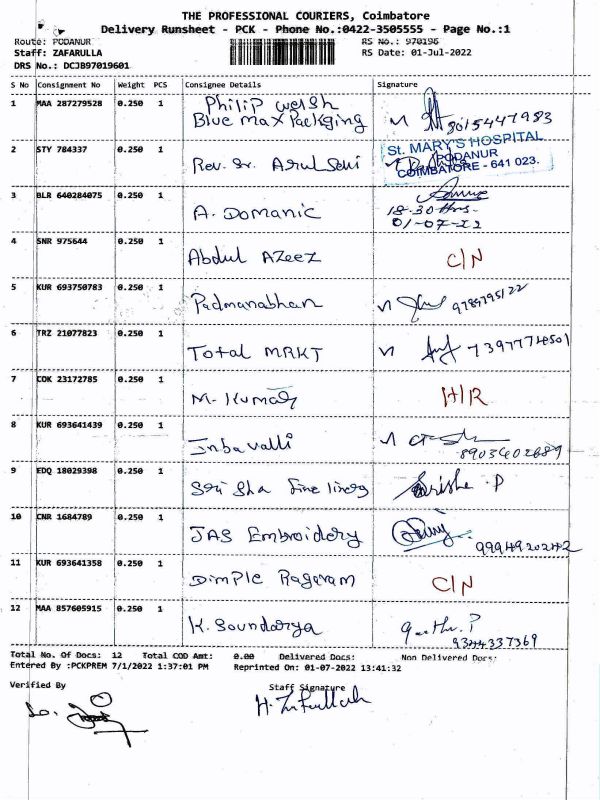 THE PROFESSIONAL COURIERS, Coimbatore
Delivery Runsheet - PCK - Phone No.:0422-3505555 - Page No.:1
Route: PODANUR RS No.: 970196
Staff: ZAFARULLA RS Date: 01-Jul-2022
DRS No.: DCJB97019601
S No Consignment No Weight PCS Consignee Details Signature
1 MAA 287279528 0.250 1 Philip welsh
Blue max Packging 8015447983
St. MARY'S HOSPITAL
PODANUR
COIMBATORE - 641 023.
2 STY 784337 0.250 1 Rev. Sr. Arul Selvi
3 BLR 640284075 0.250 1 A. Domanic
18-30 Hrs.
01-07-22
4 SNR 975644 0.250 1 Abdul Azeez C/N
5 KUR 693750783 0.250 1 Padmanabhan 9789795122
6 TRZ 21077823 0.250 1 Total MRKT 7397774501
7 COK 23172785 0.250 1 M. Kumar H/R
8 KUR 693641439 0.250 1 Inbavalli
8903402689
9 EDQ 18029398 0.250 1 Sri Sha Fine liners
10 CNR 1684789 0.250 1 JAS Embroidery
9994920242
11 KUR 693641358 0.250 1 Dimple Ragaram C/N
12 MAA 857605915 0.250 1 K. Soundarya
9344337369
Total No. Of Docs: 12 Total COD Amt: 0.00 Delivered Docs: Non Delivered Docs:
Entered By :PCKPREM 7/1/2022 1:37:01 PM Reprinted On: 01-07-2022 13:41:32
Verified By Staff Signature